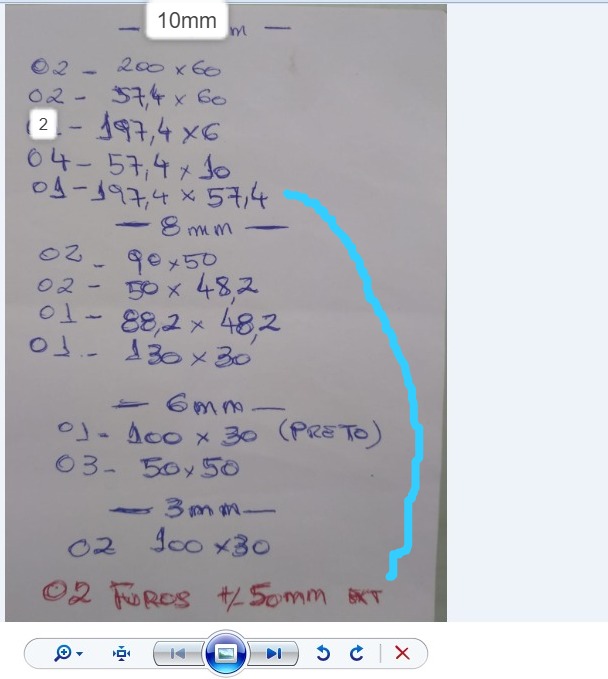 — 10mm —
02 - 200 x 60
02 - 57,4 x 60
2 - 197,4 x 6
04 - 57,4 x 10
01 - 197,4 x 57,4
— 8mm —
02 - 90 x 50
02 - 50 x 48,2
01 - 88,2 x 48,2
01 - 130 x 30
— 6mm —
01 - 100 x 30 (PRETO)
03 - 50 x 50
— 3mm —
02 100 x 30
02 FUROS +/- 50mm EXT